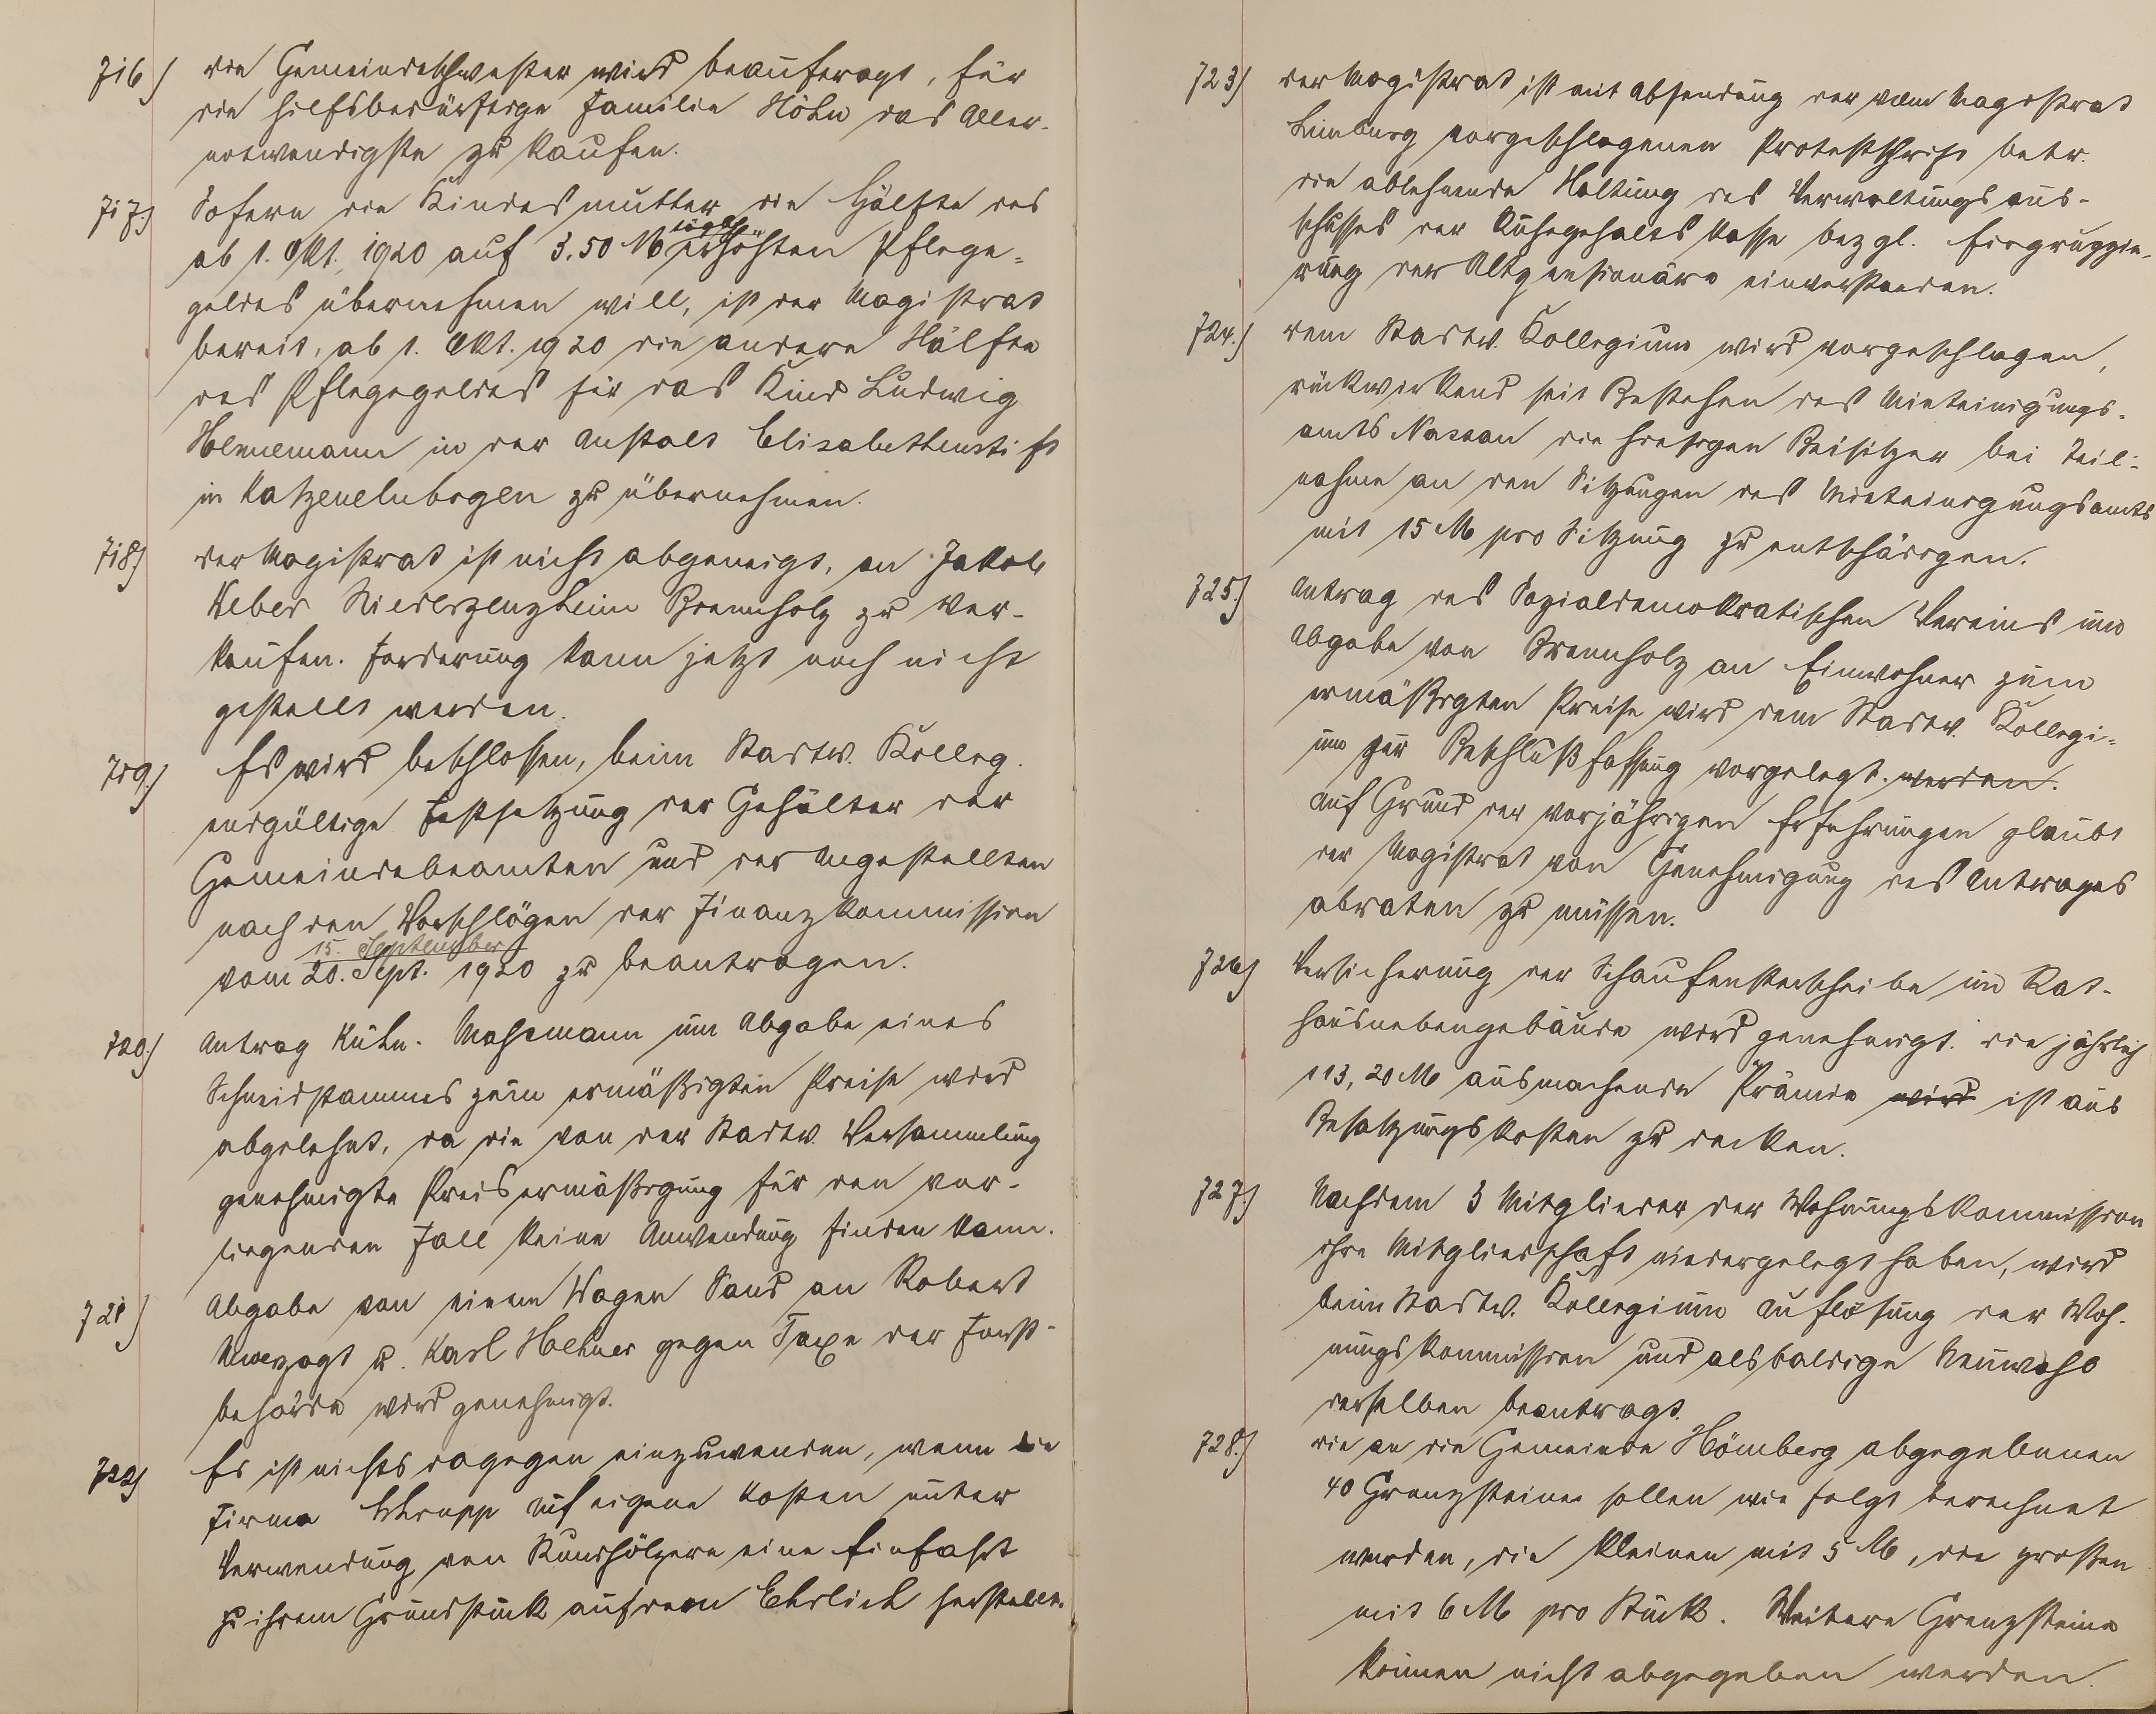 716) die Gemeindeschwester wird beauftragt, für
die hilfsbedürftige Familie Höhn das Aller-
notwendigste zu kaufen.
717.) Sofern die Kindesmutter die Hälfte des
ab 1. Okt. 1920 auf 3.50 M tägl. erhöhten Pflege-
geldes übernehmen will, ist der Magistrat
bereit, ab 1. Okt. 1920 die andere Hälfte
des Pflegegeldes für das Kind Ludwig
in der Anstalt Elisabethenstift
in Katzenelnbogen zu übernehmen.
718) der Magistrat ist nicht abgeneigt, an Jakob
Weber Brennholz zu ver-
kaufen. Forderung kann jetzt noch nicht
gestellt werden.
719.) Es wird beschlossen, beim Stadtv. Kolleg.
endgültige Festsetzung der Gehälter der
Gemeindebeamten und der Angestellten
nach den Vorschlägen der Finanzkommission
15. September
vom 20. Sept. 1920 zu beantragen.
720.) Antrag um Abgabe eines
Schneidstammes zum ermäßigten Preise wird
abgelehnt, da die von der Stadtv. Versammlung
genehmigte Preisermäßigung für den vor-
liegenden Fall keine Anwendung finden kann.
721) Abgabe von einem Wagen Sand an Robert
u. Karl Hehner gegen Taxe der Forst-
behörde wird genehmigt.
722) Es ist nichts dagegen einzuwenden, wenn die
Firma Schrupp auf eigene Kosten unter
Verwendung von Rundhölzern eine Einfahrt
zu ihrem Grundstück auf dem Ehrlich herstellt.
723) der Magistrat ist mit Absendung der vom Magistrat
Limburg vorgeschlagenen Protestschrift betr.
die ablehnende Haltung des Verwaltungsaus-
schusses der Ruhegehaltskasse bezgl. Eingruppie-
rung der Altpensionäre einverstanden.
724.) dem Stadtv. Kollegium wird vorgeschlagen,
rückwirkend seit Bestehen des Mieteinigungs-
amts Nassau die hiesigen Beisitzer bei Teil-
nahme an den Sitzungen des Mieteinigungsamts
mit 15 M pro Sitzung zu entschädigen.
725.) Antrag des Sozialdemokratischen Vereins um
Abgabe von Brennholz an Einwohner zum
ermäßigten Preise wird dem Stadtv. Kollegi-
um zur Beschlußfassung vorgelegt. werden.
Auf Grund der vorjährigen Erfahrungen glaubt
der Magistrat von Genehmigung des Antrages
abraten zu müssen.
726) Versicherung der Schaufensterscheibe im Rat-
hausnebengebäude wird genehmigt. die jährlich
113,20 M ausmachende Prämie wird ist aus
Besatzungskosten zu decken.
727.) Nachdem 3 Mitglieder der Wohnungskommission
ihre Mitgliedschaft niedergelegt haben, wird
beim Stadtv. Kollegium Auflösung der Woh-
nungskommission und alsbaldige Neuwahl
derselben beantragt.
728.) die an die Gemeinde Hömberg abgegebenen
40 Grenzsteine sollen wie folgt berechnet
werden, die kleinen mit 5 M, die großen
mit 6 M pro Stück. Weitere Grenzsteine
können nicht abgegeben werden.